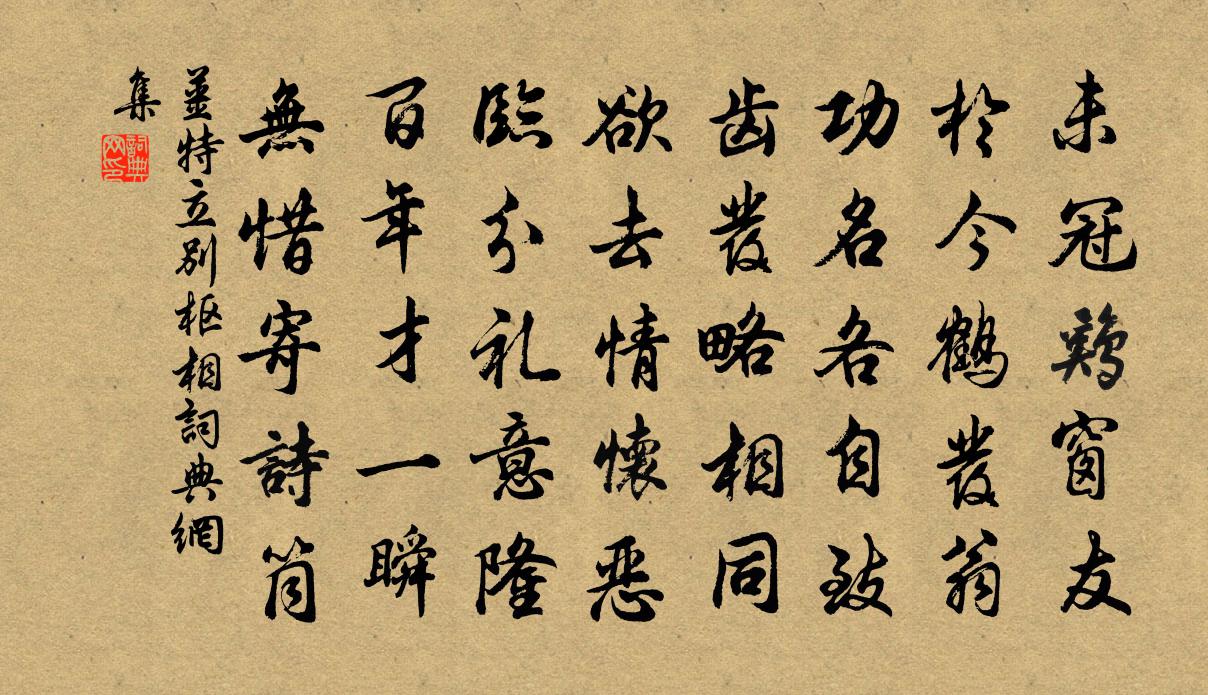 未冠鷄窗友
於今鶴發翁
功名各自致
齿發略相同
欲去情懷惡
臨分礼意隆
百年才一瞬
無惜寄詩筒
姜特立別枢相詞典網
集
詞典
网印